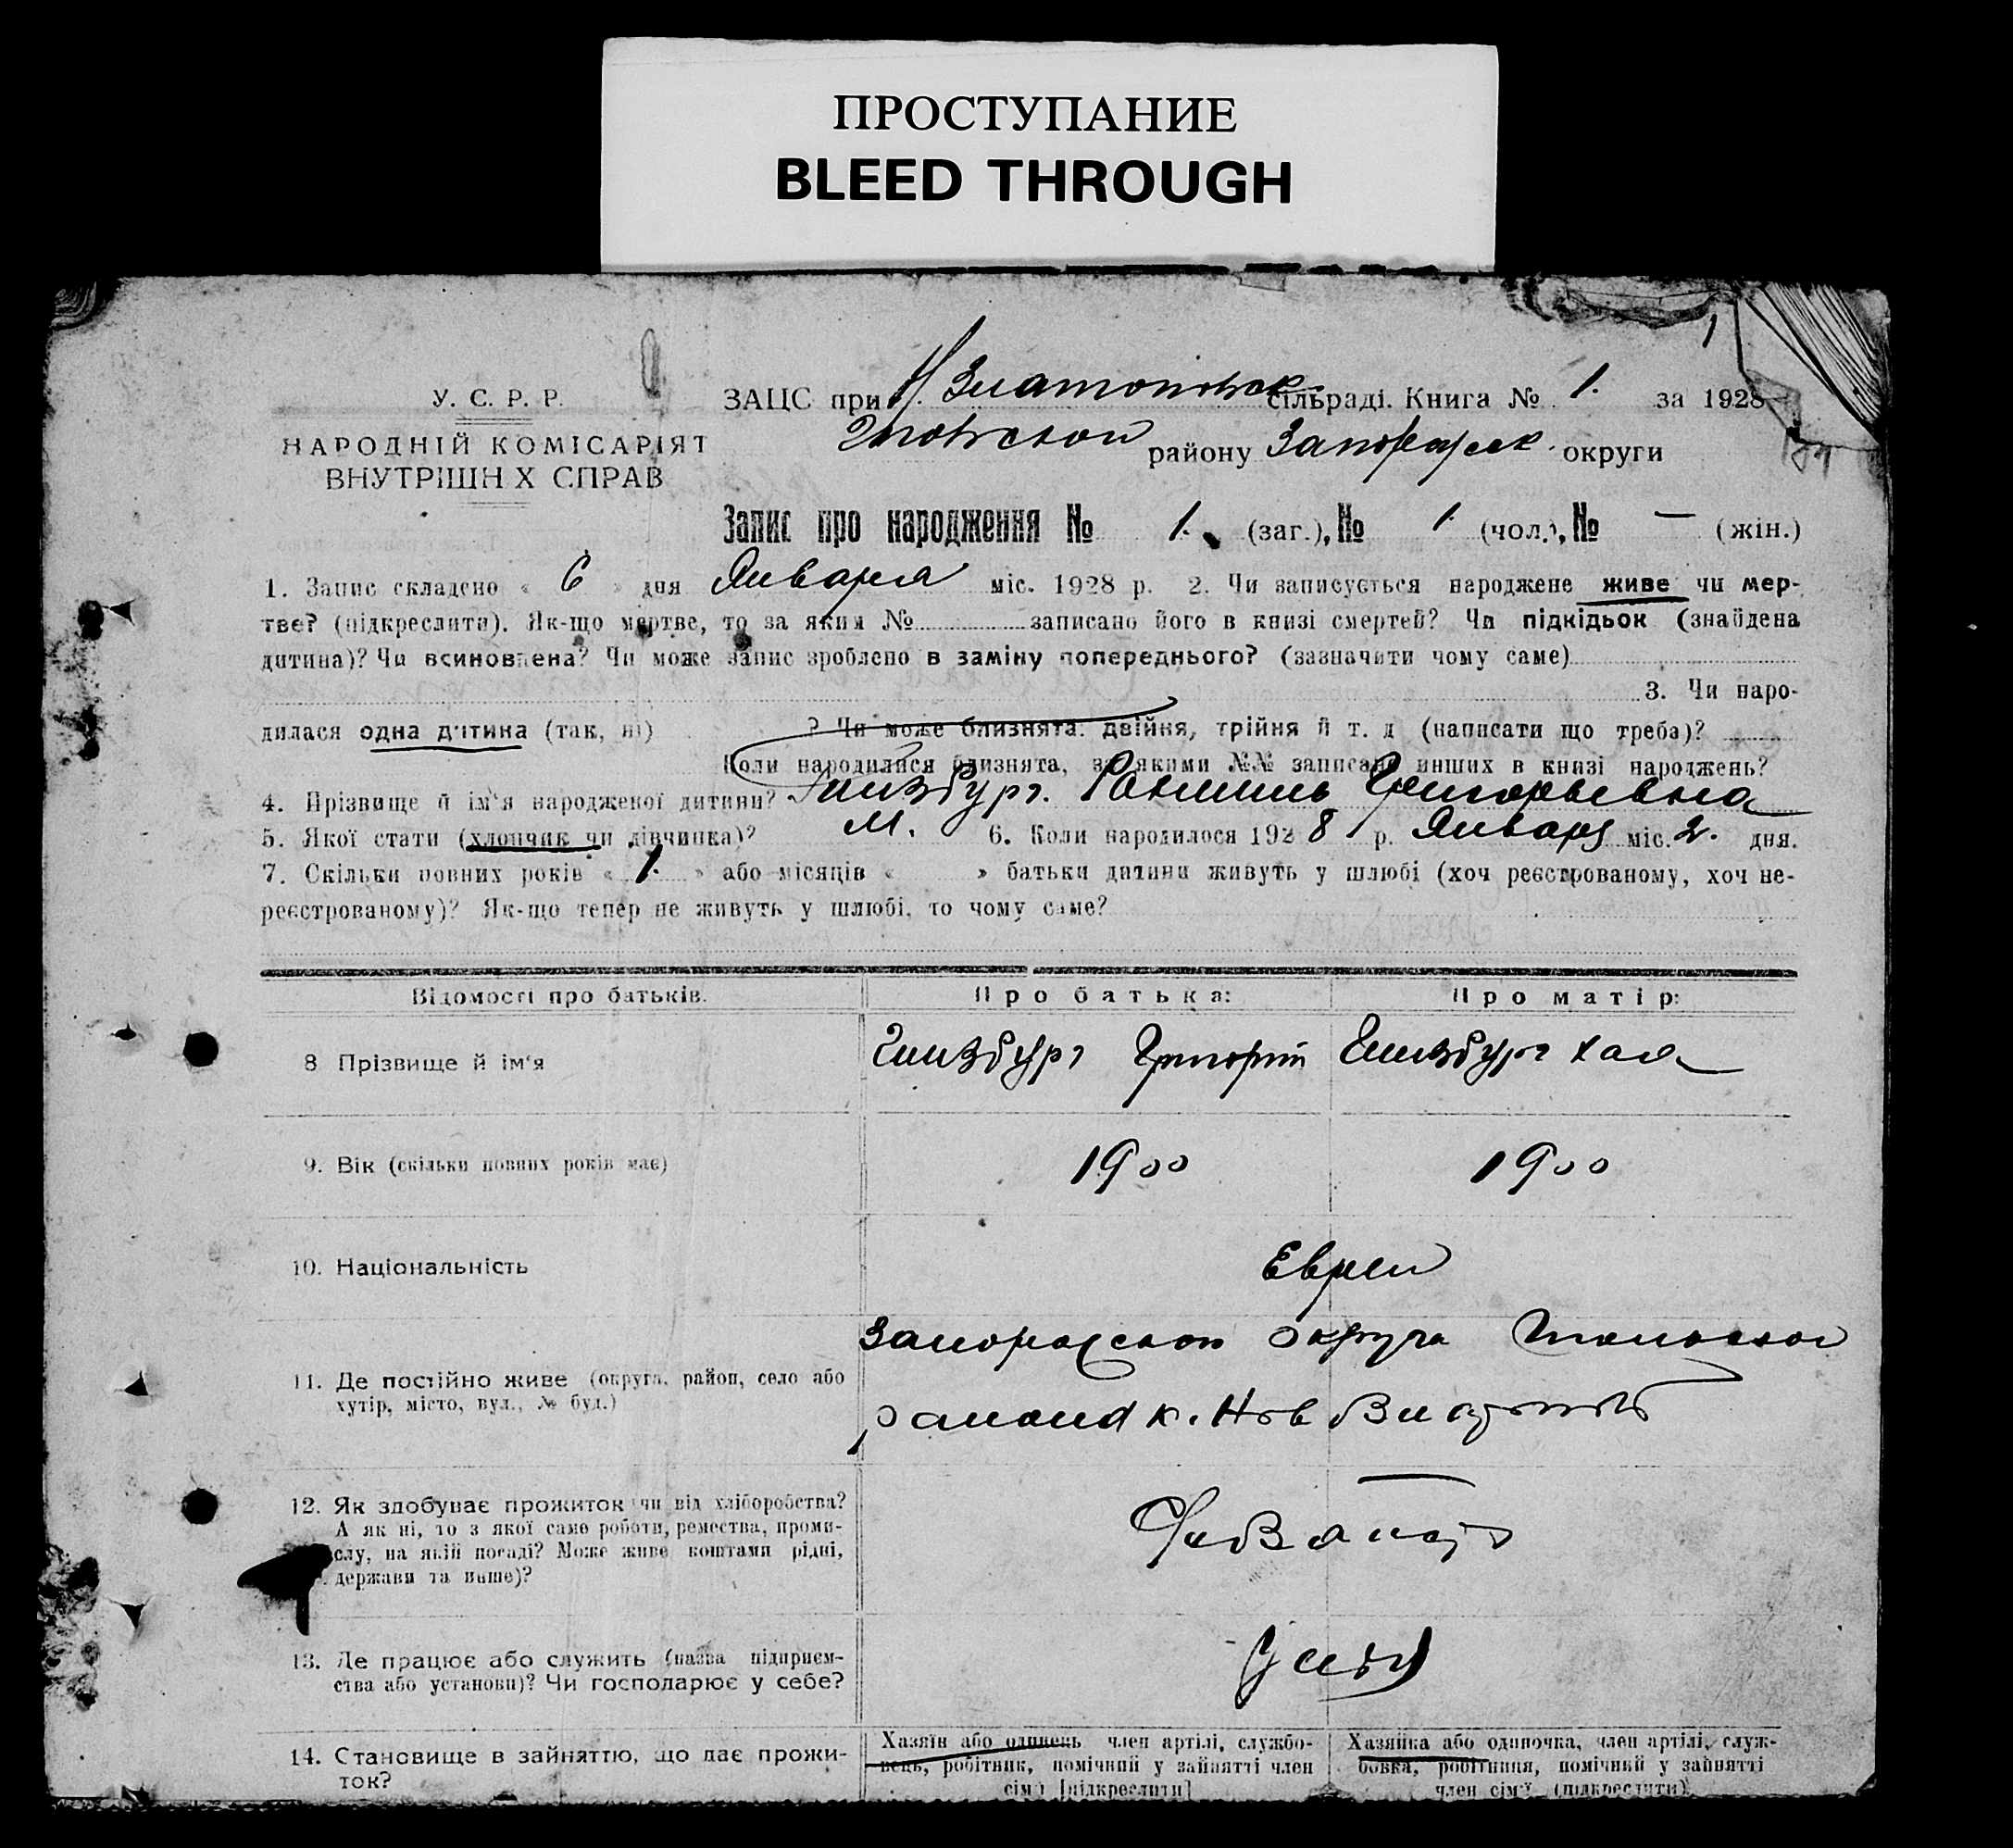 ПРОСТУПАНИЕ
BLEED THROUGH
1
У. С. Р. Р.
НАРОДНІЙ КОМІСАРІЯТ
ВНУТРІШН Х СПРАВ
ЗАЦС при Н Златопольск сільраді. Книга № 1. за 1928
району Запорожск. округи
Запис про народження № 1. (заг.), № 1. (чол.), № — (жін.)
1. Запис складено « 6 » дня Января міс. 1928 р. 2. Чи записується народжене живе чи мер-
тве? (підкреслити). Як-що мертве, то за яким № записано його в книзі смертей? Чи підкідьок (знайдена
дитина)? Чи всиновлена? Чи може запис зроблено в заміну попереднього? (зазначити чому саме)
3. Чи наро-
дилася одна дитина (так, ні) ? Чи може близнята: двійня, трійня й т. д (написати що треба)?
Коли народилися близнята, за якими №№ записано инших в книзі народжень?
4. Прізвище й ім'я народженої дитини? Гинзбург. Григорьевна
5. Якої стати (хлопчик чи дівчинка)? М. 6. Коли народилося 1928 р. Января міс. 2. дня.
7. Скільки повних років « 1. » або місяців « » батьки дитини живуть у шлюбі (хоч реєстрованому, хоч не-
реєстрованому)? Як-що тепер не живуть у шлюбі, то чому саме?
Відомості про батьків. Про батька: Про матір:
8 Прізвище й ім'я Гинзбург Григорій Гинзбург Хая
9. Вік (скільки повних років має) 1900 1900
10. Національність Евреи
Запорожской округи
11. Де постійно живе (округа, район, село або
хутір, місто, вул., № буд.) района к. Нов
12. Як здобуває прожиток чи від хліборобства?
А як ні, то з якої само роботи, ремества, проми-
слу, на якій посаді? Може живе коштами рідні,
держави та инше)?
13. Де працює або служить (назва підприєм-
ства або установи)? Чи господарює у себе?
14. Становище в зайняттю, що дає прожи-
ток?
Хазяїн або одинець член артілі, службо-
вець, робітник, помічний у зайнятті член
сім'ї [підкреслити]
Хазяйка або одиночка, член артілі, служ-
бовка, робітниця, помічний у зайнятті
член сім'ї (підкреслити)